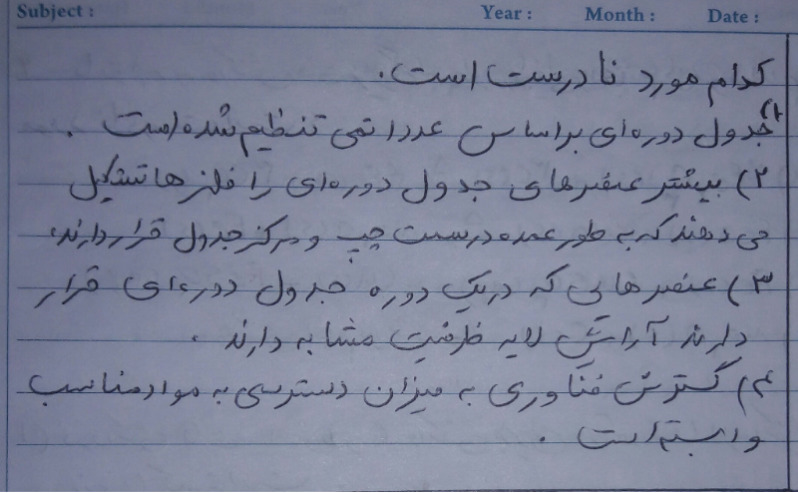 Subject : Year : Month : Date :
کدام مورد نا درست است.
۱) جدول دوره‌ای براساس عدد اتمی تنظیم شده است .
۲) بیشتر عنصرهای جدول دوره‌ای را فلزها تشکیل
می دهند که به طور عمده در سمت چپ و مرکز جدول قرار دارند.
۳) عنصرهایی که در یک دوره جدول دوره‌ای قرار
دارند آرایش لایه ظرفیت مشابه دارند .
۴) گسترش فناوری به میزان دسترسی به مواد مناسب
وابسته است .